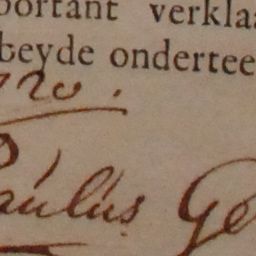 portant verklaa
beyde ondertee
720.
Paulus Ge